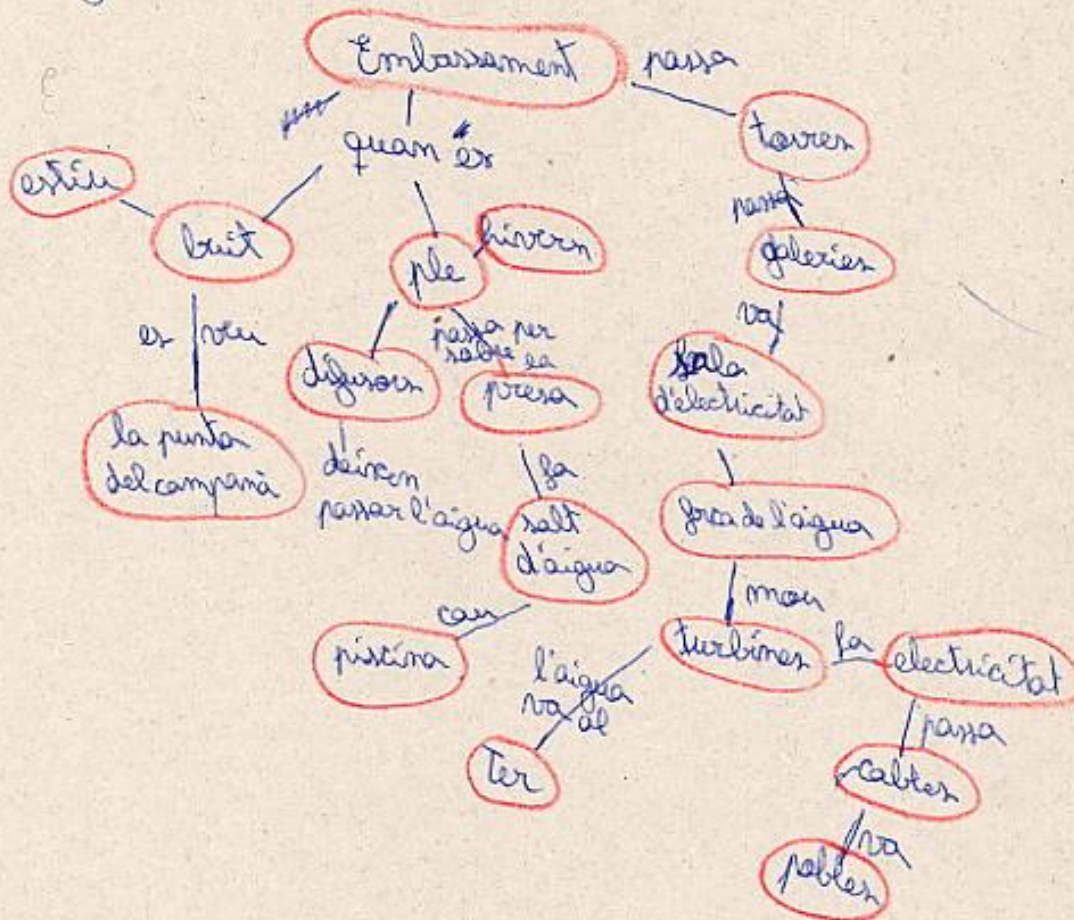 Embassament
passa
quan és
torres
estiu
buit
passa
ple
hivern
galeries
es veu
passa per
sobre la
va
difusors
presa
sala
d'electricitat
la punta
del campanà
deixen
passar l'aigua
fa
salt
d'aigua
força de l'aigua
cau
mou
piscina
turbines
fa
electricitat
l'aigua
va al
passa
Ter
cables
va
pobles